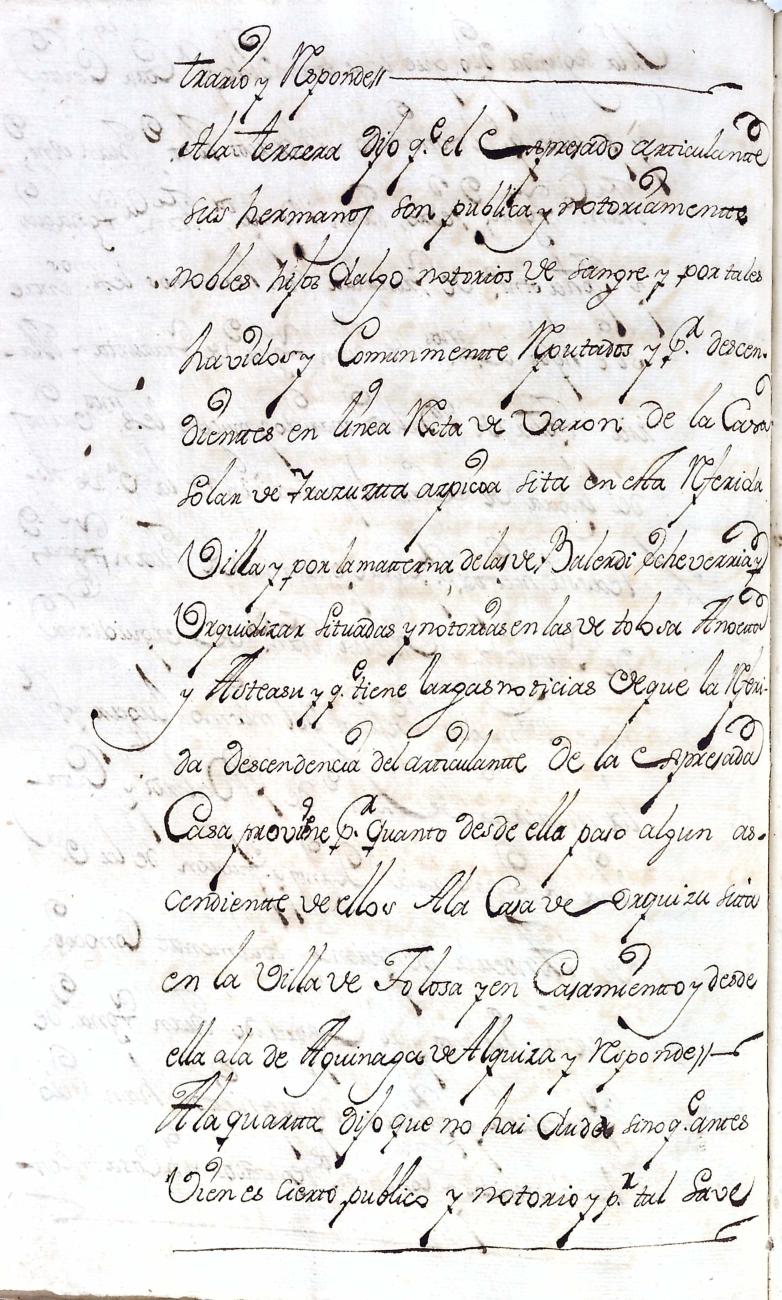 trario y Responde//
Ala terzera dijo q.e el Espresado articulantte
sus hermanos son publica y notoriamentte
nobles hijos Dalgo notorios de sangre y por tales
havidos y Comunmentte Reputados y p.r descen-
dienttes en linea Recta de Varon de la Casa
solar de Yrazuzta azpicoa sita en esta Referida
Villa y por la matterna de las de Balerdi Echeverria y
Urquidizar situadas y notorias en las de tolosa Anoeta
y Asteasu y q.e tiene largas noticias de que la Referi-
da descendencia del articulantte de la Espresada
Casa proviene p.r quanto desde ella paso algun as-
cendientte de ellos Ala Casa de Urquizu sitta
en la Villa de Tolosa y en Casamientto y desde
ella ala de Aguinaga de Alquiza y Responde//
Ala quartta dijo que no hai duda sino q.e antes
Vien es cierto publico y notorio y p.r tal save